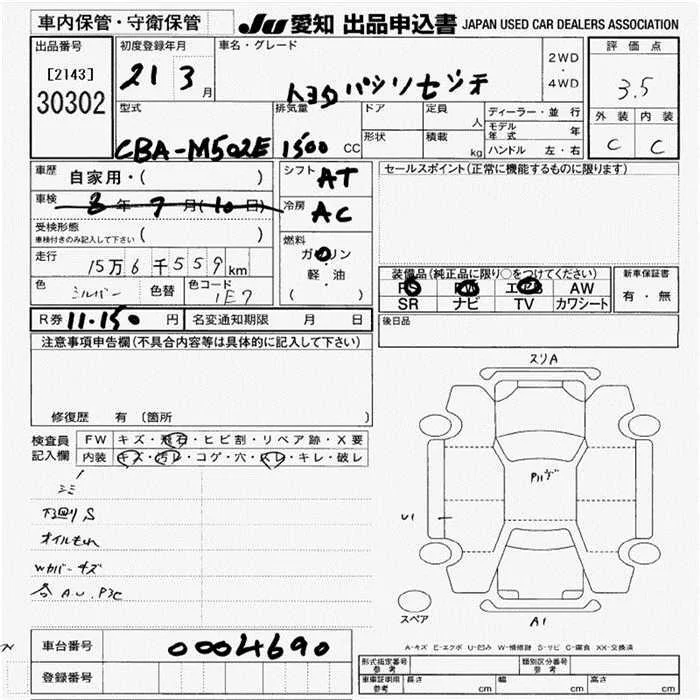 車内保管・守衛保管
JU 愛知 出品申込書 JAPAN USED CAR DEALERS ASSOCIATION
出品番号
[2143]
30302
初度登録年月
21 3 月
車名・グレード
トヨタ パッソセッテ
2WD
・
4WD
評価点
3.5
外装 内装
C C
型式
CBA-M502E
排気量
1500 CC
ドア
形状
定員
人
積載
kg
ディーラー・並行
モデル年式 年
ハンドル 左・右
車歴 自家用・( )
車検 8年9月(10日)
受検形態
車検付きのみ記入して下さい ( )
走行 15万6千559km
色 シルバー 色替 色コード 1E7
シフト AT
冷房 AC
燃料
ガソリン
・
軽・油
( )
セールスポイント(正常に機能するものに限ります)
装備品(純正品に限り○をつけてください)
PS PW エアB AW
SR ナビ TV カワシート
新車保証書
有・無
後日品
R券 11.150 円 名変通知期限 月 日
注意事項申告欄(不具合内容等は具体的に記入して下さい)
修復歴 有 〔箇所 〕
検査員記入欄
FW キズ・飛石・ヒビ割・リペア跡・X要
内装 キズ・汚レ・コゲ・穴・スレ・キレ・破レ
シミ
下廻りS
オイルもれ
Wカバーキズ
A.U.P3C
スリA
U1
A1
スペア
A-キズ E-エクボ U-凹み W-補修跡 S-サビ C-腐食 XX-交換済
車台番号 0004690
登録番号
形式指定番号 参考
類別区分番号 参考
車庫証明用 参考 長さ cm 幅 cm 高さ cm